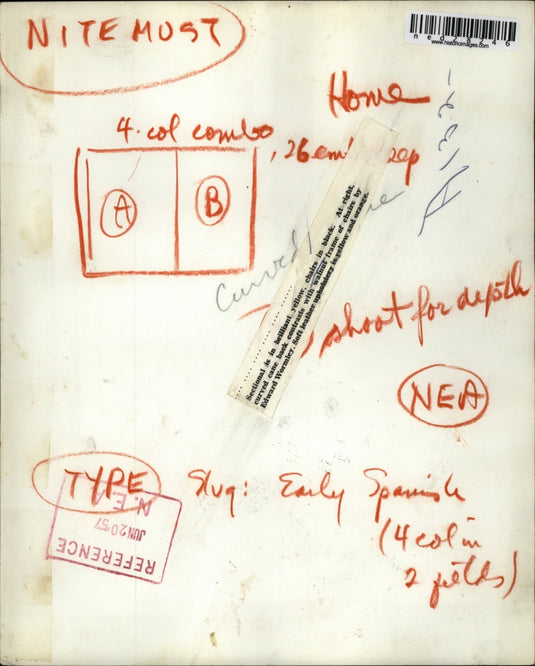 NITE MUST
ned28246
www.historicimages.com
Home
4 col combo
A
B
Sectional is in brilliant yellow, chairs in black. At right,
curved cane back contrasts with walnut frame of chairs by
Edward Wormley. Soft leather upholstery is yellow and orange.
shoot for depth
NEA
TYPE
Slug: Early Spanish
(4 col in
2 fields)
N. E. A.
JUN 20 57
REFERENCE